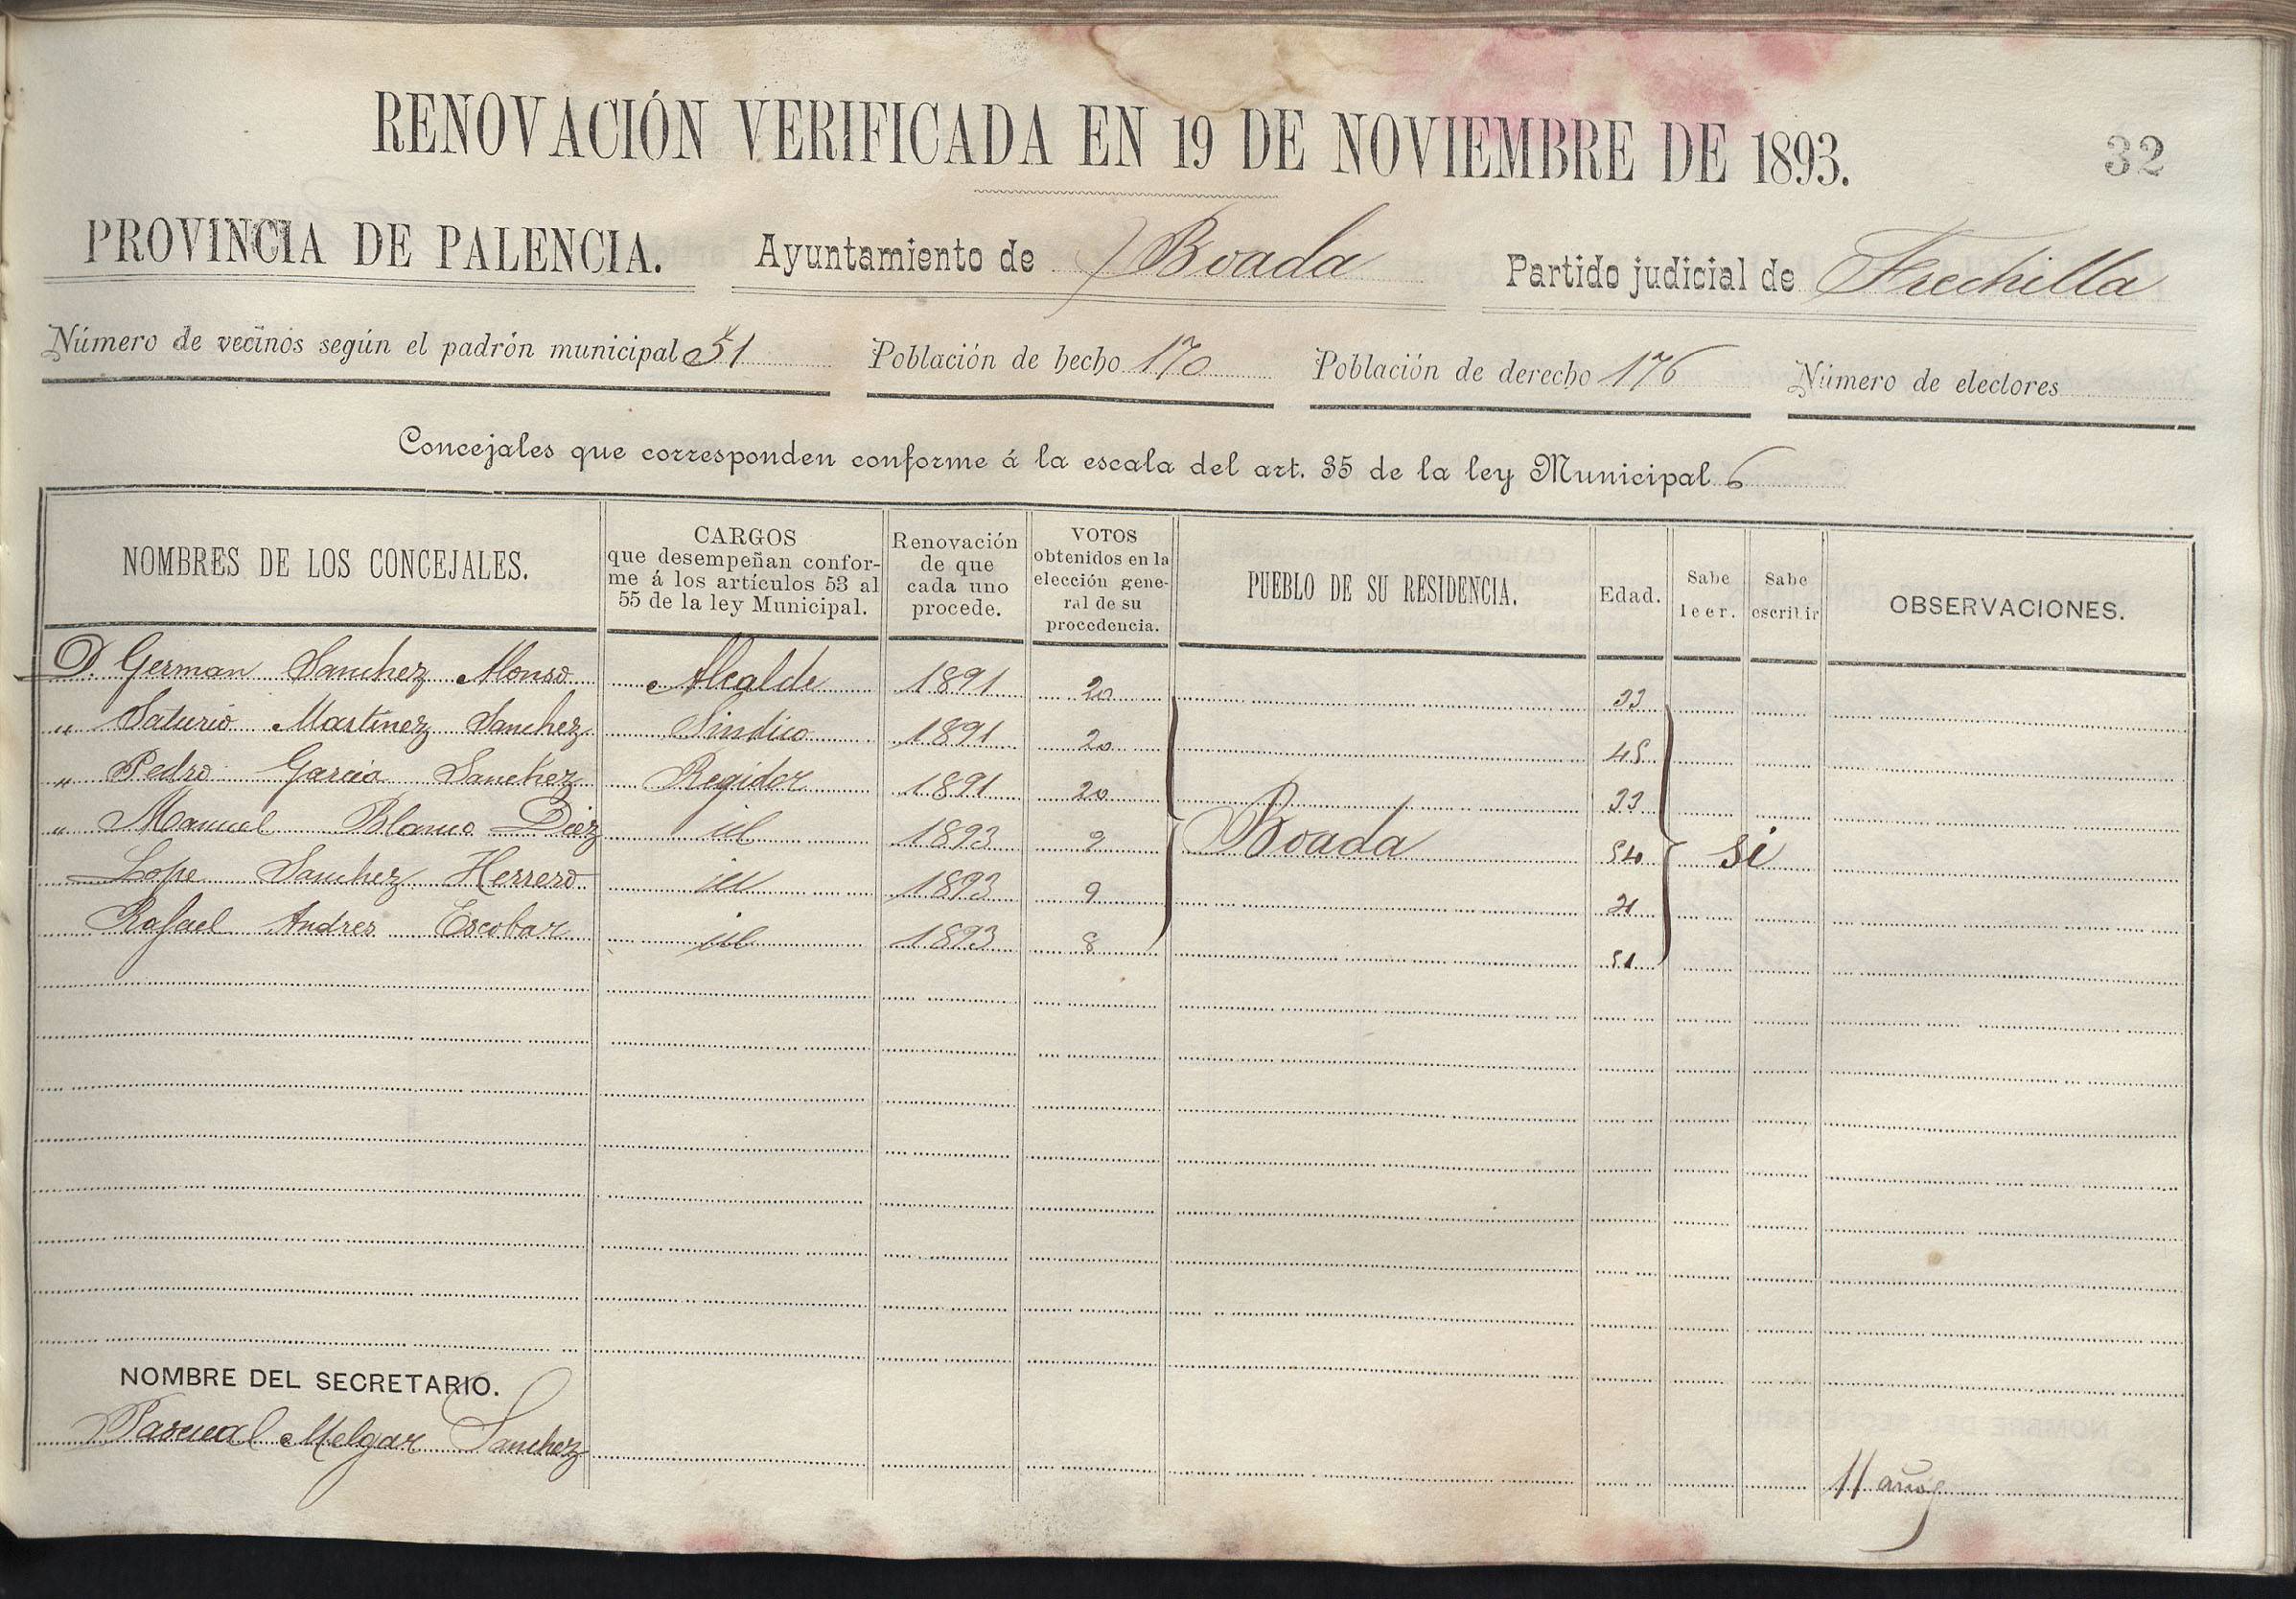 RENOVACIÓN VERIFICADA EN 19 DE NOVIEMBRE DE 1893.
32
PROVINCIA DE PALENCIA. Ayuntamiento de Boada Partido judicial de Frechilla
Número de vecinos según el padrón municipal 51 Población de hecho 170 Población de derecho 176 Número de electores
Concejales que corresponden conforme á la escala del art. 35 de la ley Municipal 6
NOMBRES DE LOS CONCEJALES.
CARGOS
que desempeñan confor-
me á los artículos 53 al
55 de la ley Municipal.
Renovación
de que
cada uno
procede.
VOTOS
obtenidos en la
elección gene-
ral de su
procedencia.
PUEBLO DE SU RESIDENCIA.
Edad.
Sabe
leer.
Sabe
escribir
OBSERVACIONES.
D. German Sanchez Alonso Alcalde 1891 20 33
" Saturio Martinez Sanchez Sindico 1891 20 45
" Pedro Garcia Sanchez Regidor 1891 20 33
" Manuel Blanco Diez id 1893 9 Boada 54 si
Lope Sanchez Herrero id 1893 9
Rafael Andres Escobar id 1893 8 51
NOMBRE DEL SECRETARIO.
Pascual Melgar Sanchez 11 años